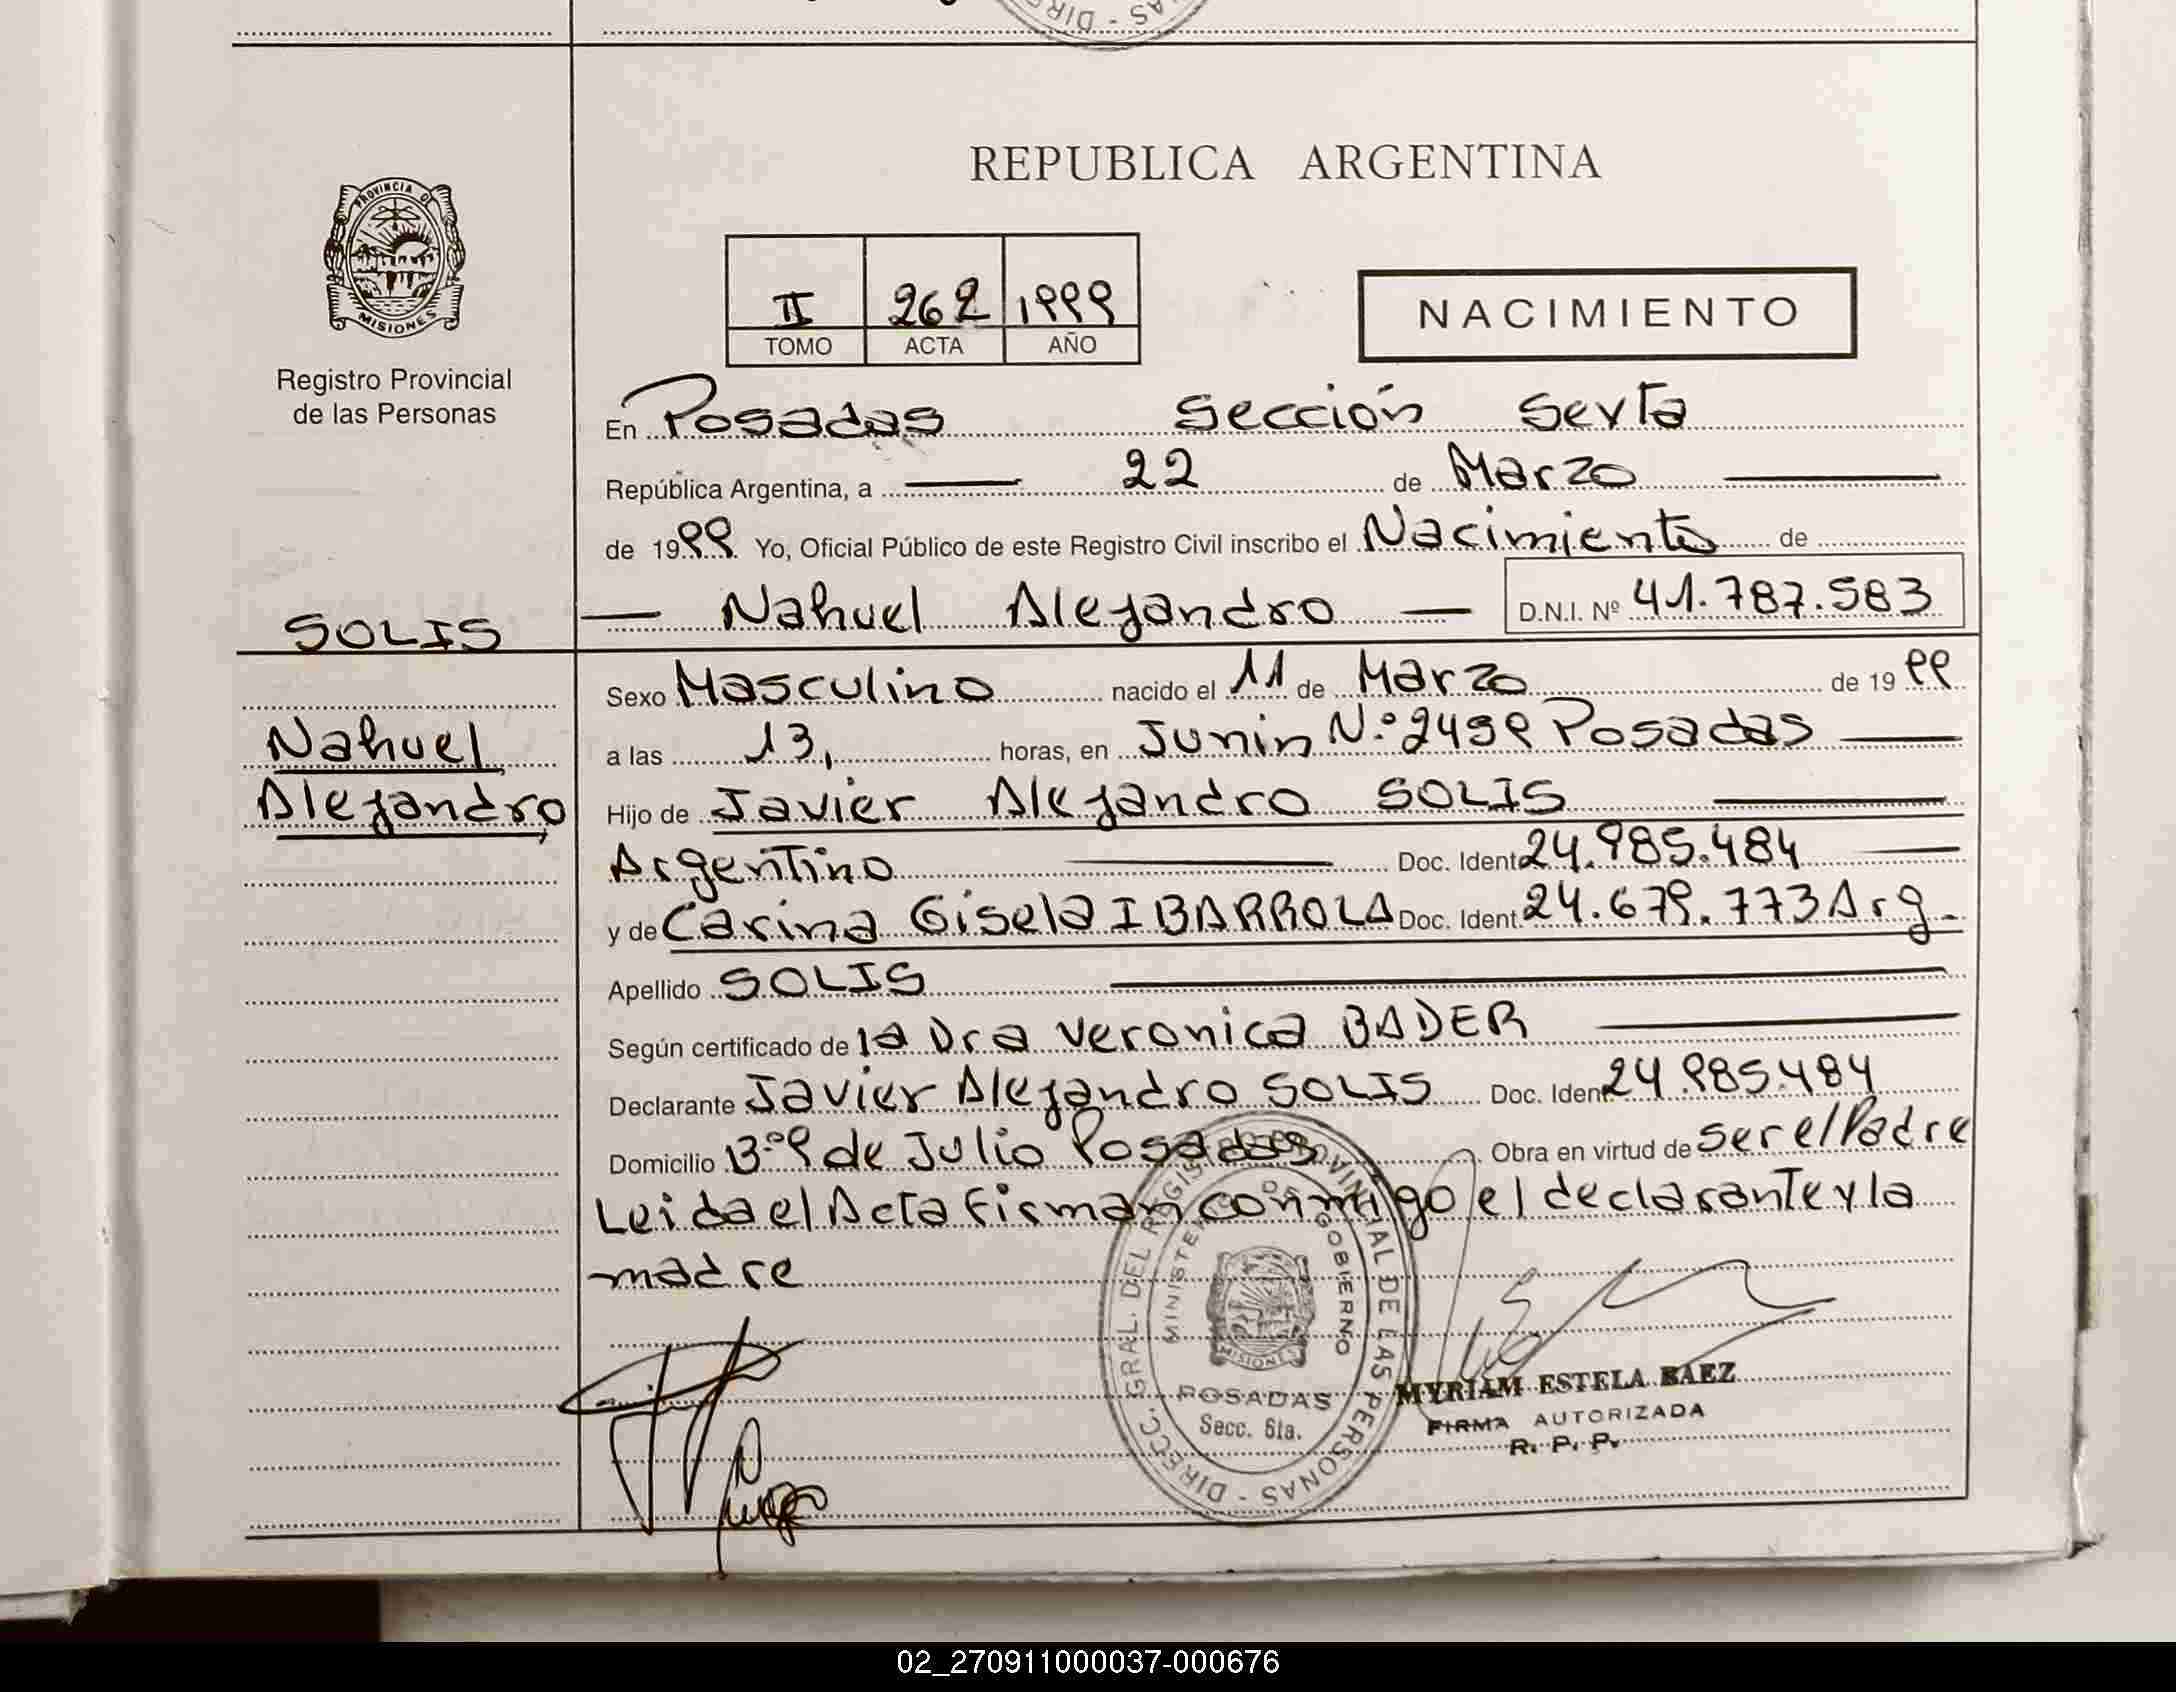 REPUBLICA ARGENTINA
PROVINCIA DE
MISIONES
Registro Provincial
de las Personas
II 262 1999
TOMO ACTA AÑO
NACIMIENTO
En Posadas Sección Sexta
República Argentina, a — 22 de Marzo —
de 1999 Yo, Oficial Público de este Registro Civil inscribo el Nacimiento de
— Nahuel Alejandro — D.N.I. Nº 41.787.583
SOLIS
Nahuel
Alejandro,
Sexo Masculino nacido el 11 de Marzo de 1999
a las 13, horas, en Junin N:º 2499 Posadas —
Hijo de Javier Alejandro SOLIS —
Argentino — Doc. Ident 24.985.484 —
y de Carina Gisela IBARROLA Doc. Ident. 24.679.773 Arg.
Apellido SOLIS —
Según certificado de la Dra Veronica BADER —
Declarante Javier Alejandro SOLIS Doc. Ident 24.985.484
Domicilio Bº 9 de Julio Posadas Obra en virtud de ser el Padre
Leida el Acta firman conmigo el declarante y la
madre
DIRECC. GRAL. DEL REGISTRO PROVINCIAL DE LAS PERSONAS -
MINISTERIO DE GOBIERNO
MISIONES
POSADAS
Secc. 6ta.
MYRIAM ESTELA BAEZ
FIRMA AUTORIZADA
R. P. P.
02_270911000037-000676